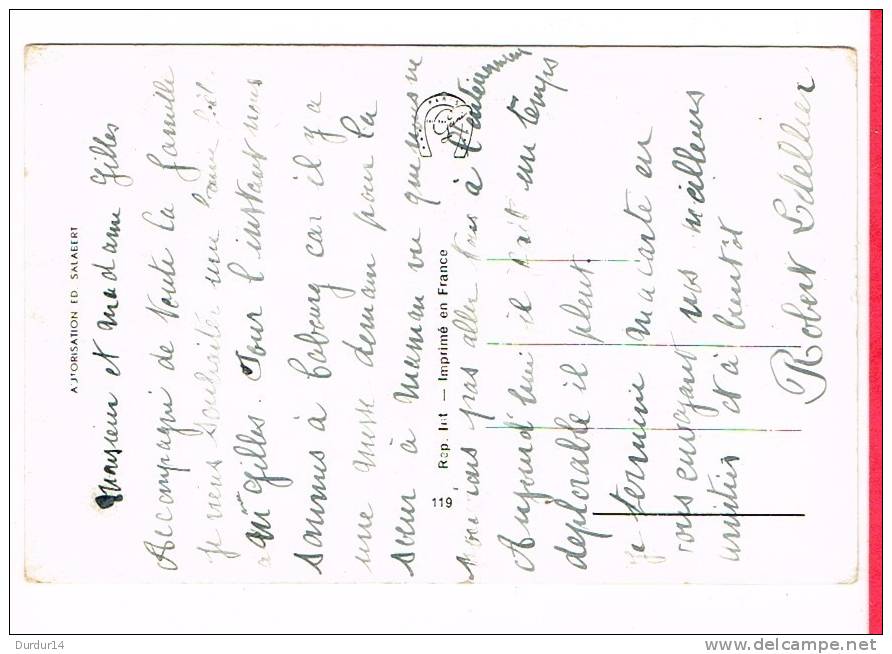 AUTORISATION ED SALABERT
Monsieur et madame Gilles
Accompagné de toute la famille
je viens souhaiter une bonne fête
a Mme Gilles. Pour l'instant nous
sommes à Cabourg car il y a
une messe demain pour la
soeur à Maman vu que nous ne
pouvions pas aller tous à l'enterrement
Aujourd'hui il fait un temps
deplorable il pleut
je termine ma carte en
vous envoyant nos meilleurs
amitiés et à bientôt
Robert
119 Rep. Int — Imprimé en France
PARIS
Durdur14
www.delcampe.net